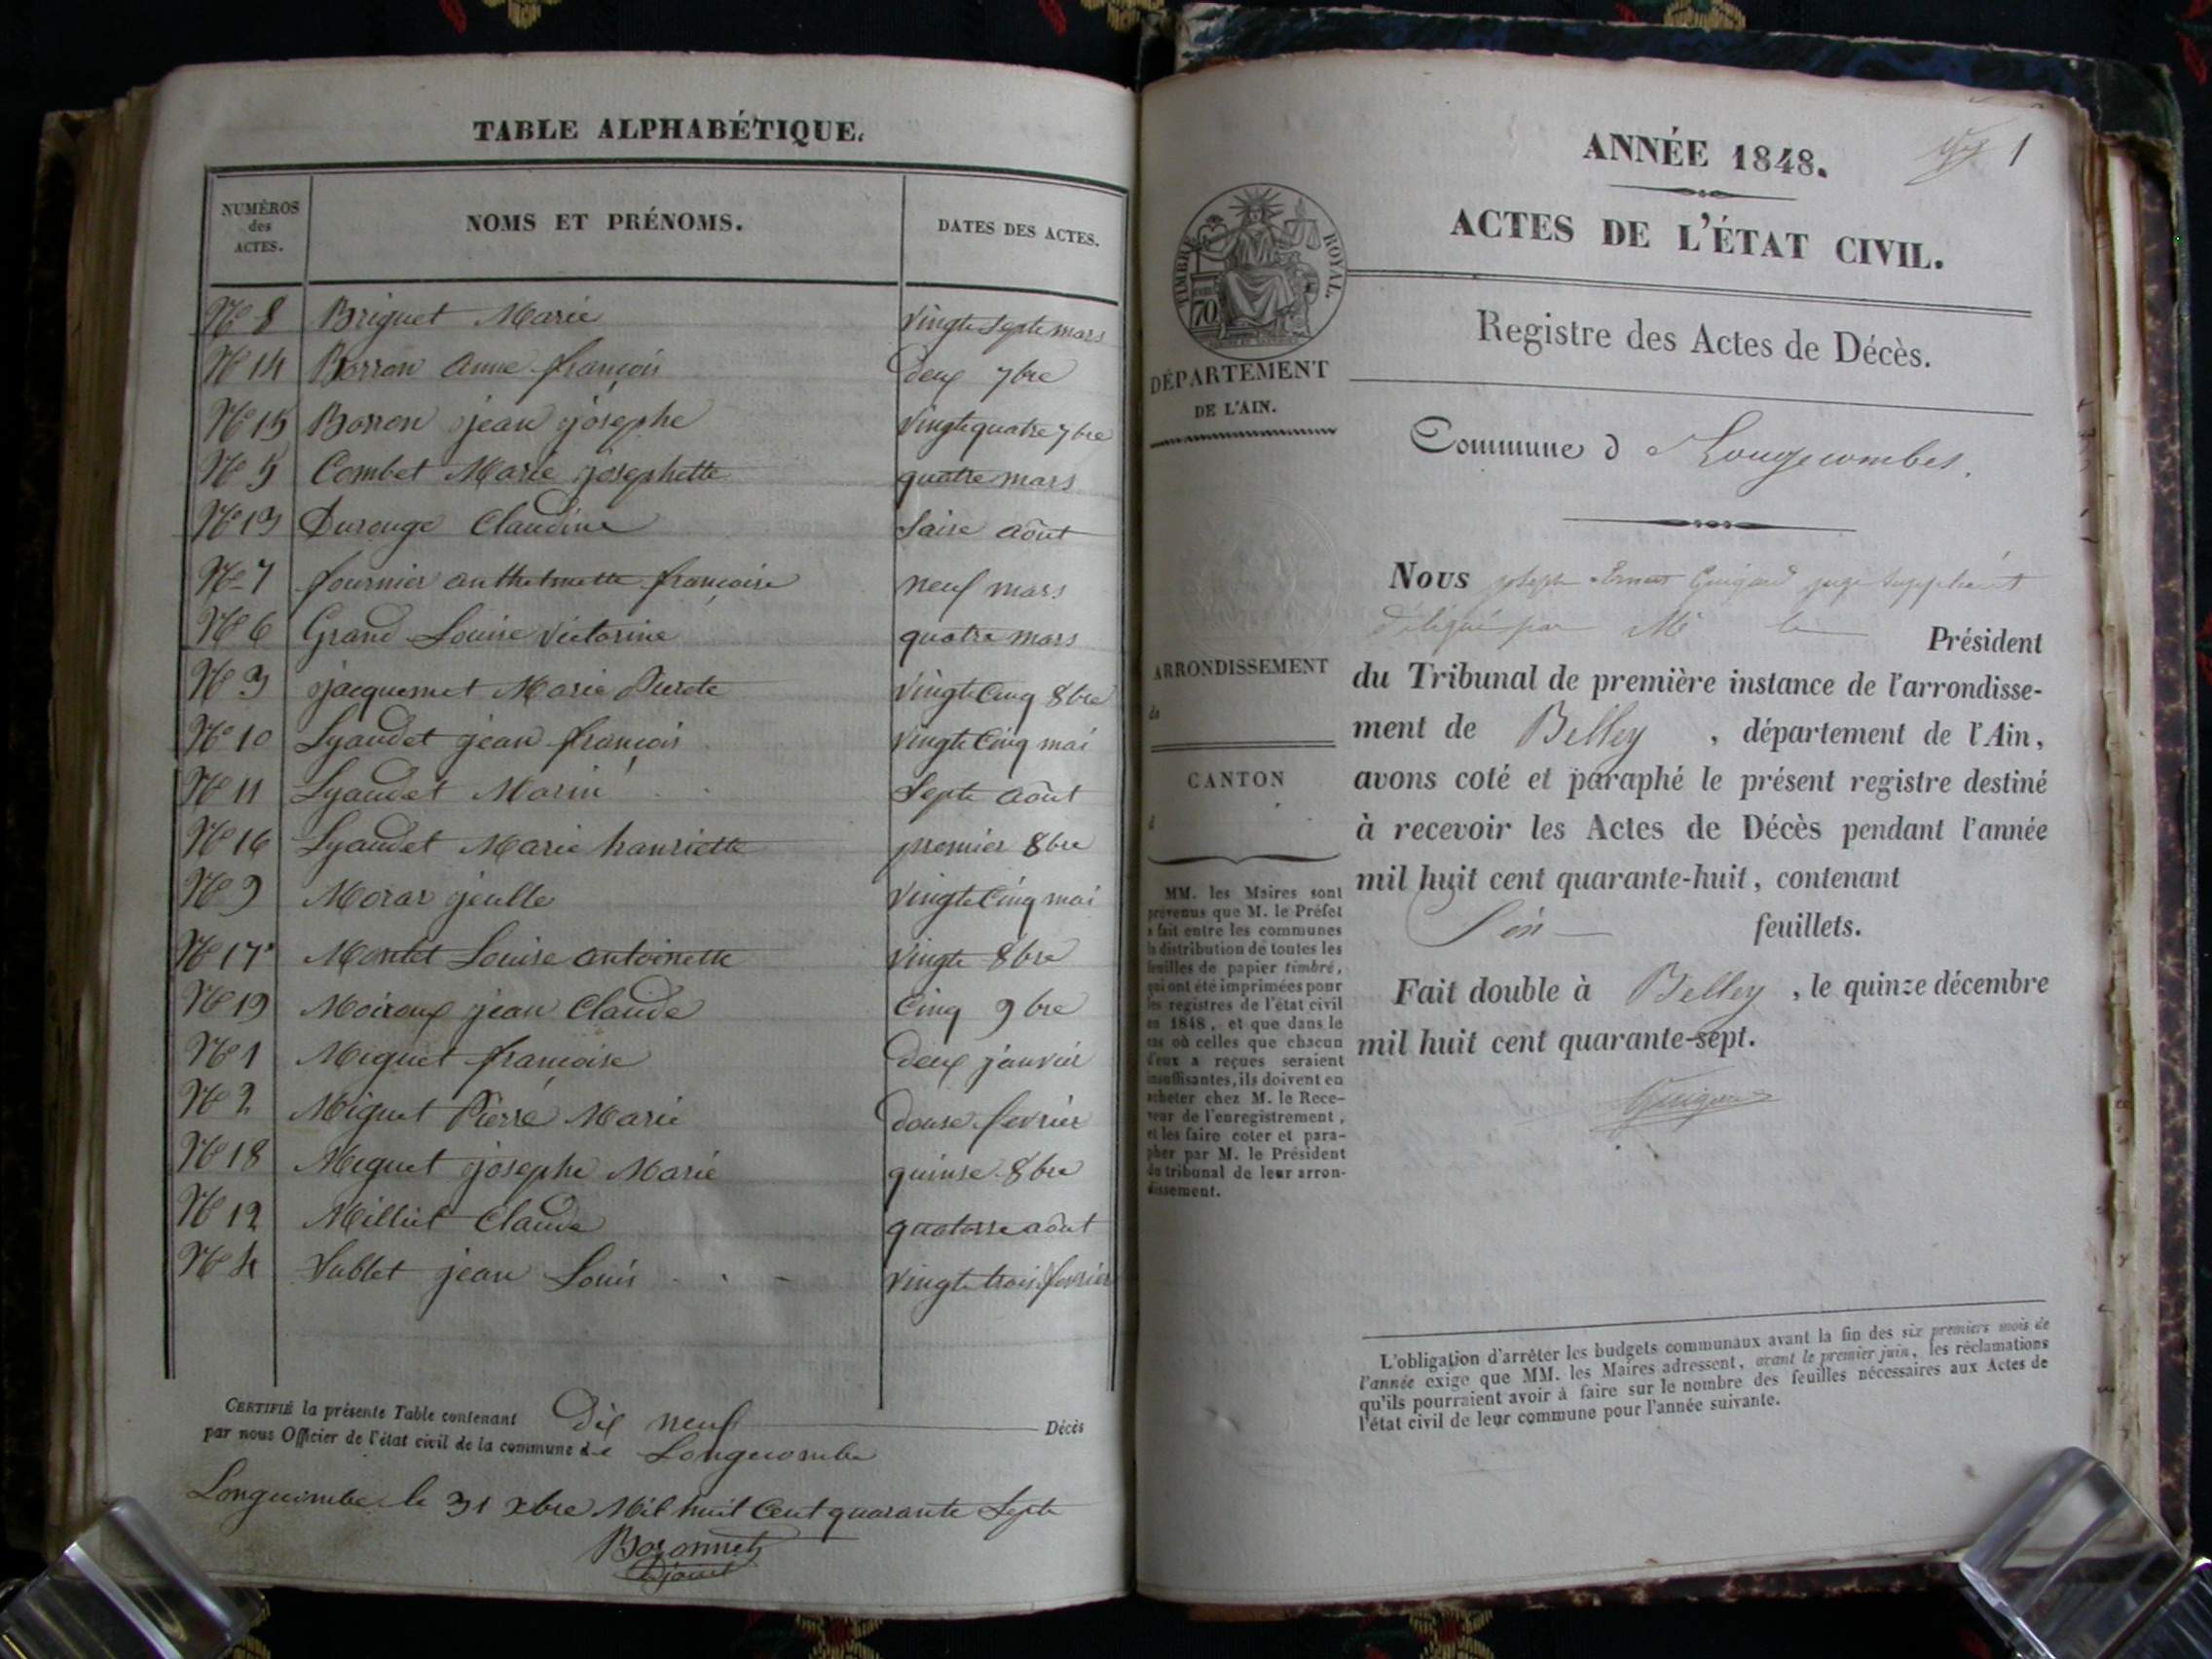 TABLE ALPHABÉTIQUE.
NUMÉROS
des
ACTES.
NOMS ET PRÉNOMS.
DATES DES ACTES.
No 8 Briguet Marie vingt septe mars
No 14 Borron Anne françois deux 7bre
No 15 Borron jean josephe vingt quatre 7bre
No 5 Combet Marie josephette quatre mars
No 13 Durouge Claudine saise Août
No 7 fournier anthelmette françoise neuf mars
No 6 Grand Louise Victorine quatre mars
No 3 jacquemet Marie Pierete vingt Cinq 8bre
No 10 Lyaudet jean françois vingt Cinq mai
No 11 Lyaudet Marin Septe Août
No 16 Lyaudet Marie hanriette premier 8bre
No 9 Morar jeulle vingt Cinq mai
No 17 Montet Louise antoinette vingt 8bre
No 19 Moiroux jean Claude Cinq 9bre
No 1 Miguet françoise deux janvier
No 2 Miguet Pierre Marie douse fevrier
No 18 Miguet josephe Marie quinse 8bre
No 12 Milliet Claude quatorse août
No 4 Sublet jean Louis vingt trois fevrier
CERTIFIÉ la présente Table contenant Dix neuf Décès
par nous Officier de l'état civil de la commune de Longecombe
Longecombe le 31 xbre Mil huit Cent quarante Septe
Bozonnet
adjoint
1
ANNÉE 1848.
ACTES DE L'ÉTAT CIVIL.
TIMBRE ROYAL.
70
Registre des Actes de Décès.
DÉPARTEMENT
DE L'AIN.
Commune d Longecombes.
Nous joseph Ernest Guigard juge suppléant
délégué par Mr le Président
ARRONDISSEMENT
de
CANTON
d
du Tribunal de première instance de l'arrondisse-
ment de Belley, département de l'Ain,
avons coté et paraphé le présent registre destiné
à recevoir les Actes de Décès pendant l'année
mil huit cent quarante-huit, contenant
Six feuillets.
Fait double à Belley, le quinze décembre
mil huit cent quarante-sept.
MM. les Maires sont
prévenus que M. le Préfet
a fait entre les communes
la distribution de toutes les
feuilles de papier timbré,
qui ont été imprimées pour
les registres de l'état civil
en 1848, et que dans le
cas où celles que chacun
d'eux a reçues seraient
insuffisantes, ils doivent en
acheter chez M. le Rece-
veur de l'enregistrement,
et les faire coter et para-
pher par M. le Président
du tribunal de leur arron-
dissement.
L'obligation d'arrêter les budgets communaux avant la fin des six premiers mois de
l'année exige que MM. les Maires adressent, avant le premier juin, les réclamations
qu'ils pourraient avoir à faire sur le nombre des feuilles nécessaires aux Actes de
l'état civil de leur commune pour l'année suivante.